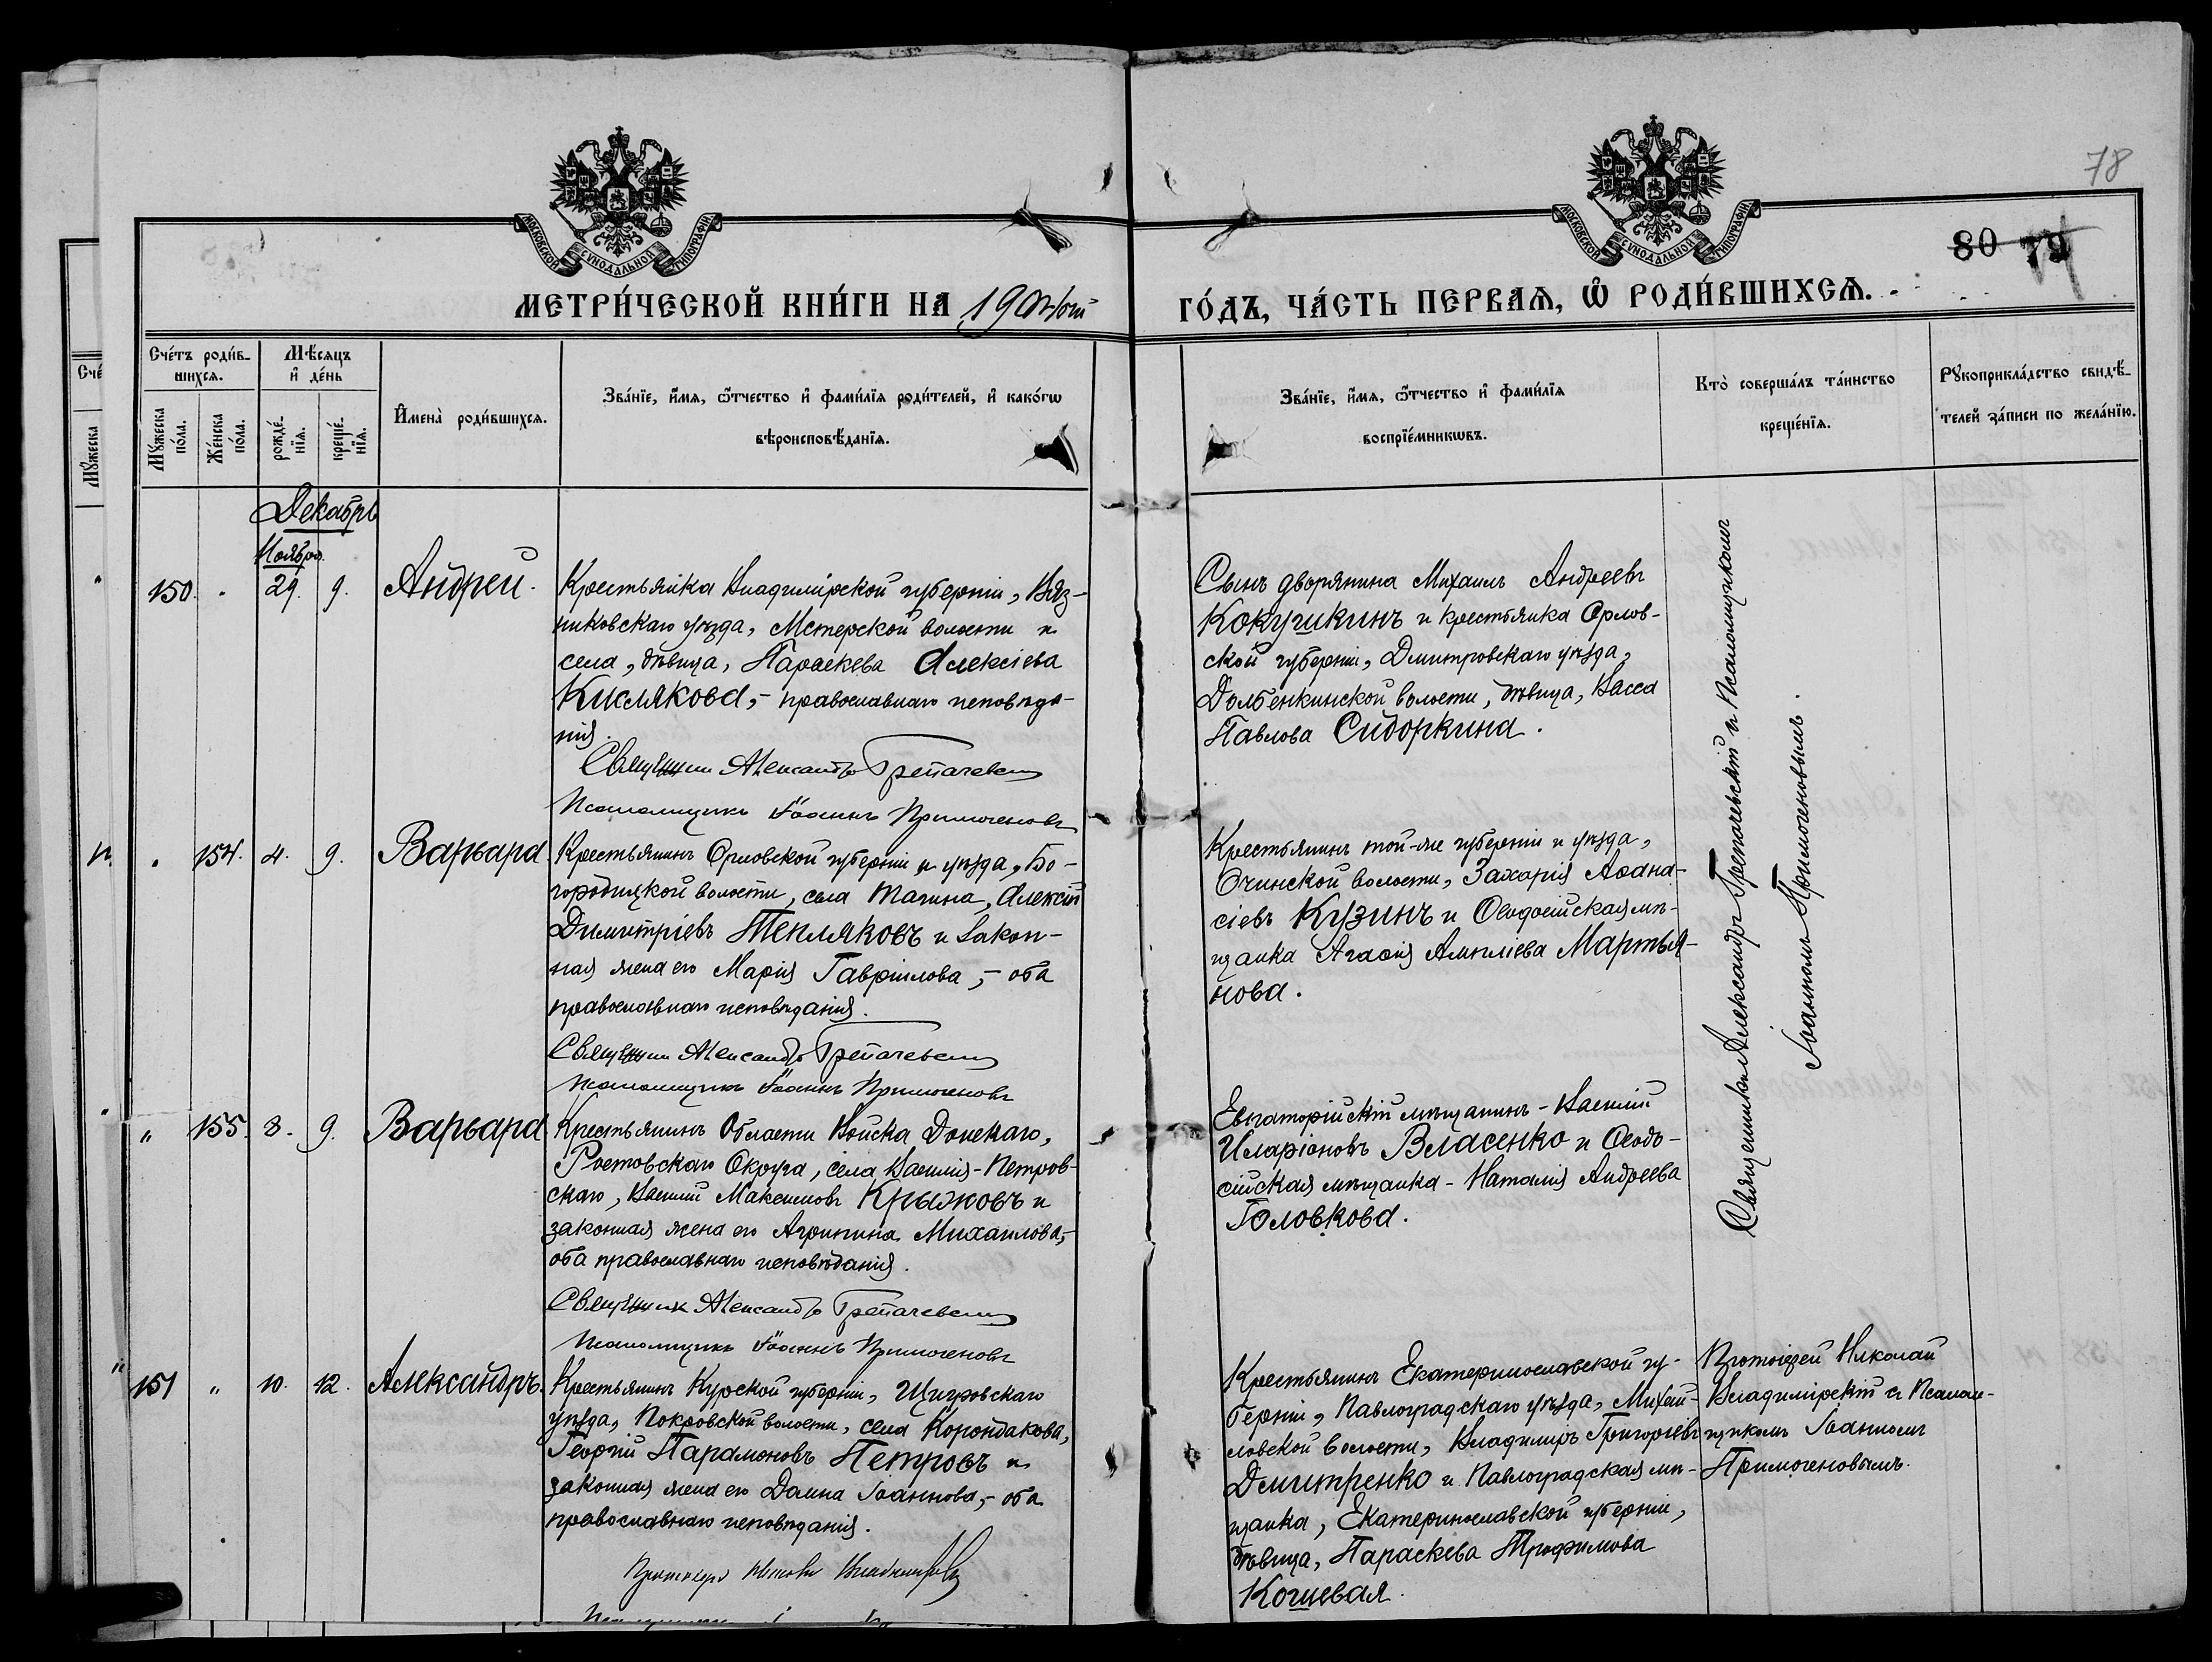 78
80 79
МОСКОВСКОЙ СѴНОДАЛЬНОЙ ТИПОГРАФІИ
МОСКОВСКОЙ СѴНОДАЛЬНОЙ ТИПОГРАФІИ
МЕТРИ́ЧЕСКОЙ КНИ́ГИ НА 190
ГО́ДЪ, ЧА́СТЬ ПЕРВАѦ, Ѽ РОДИ́ВШИХСѦ.
Сче́тъ роди́в-
шихсѧ.
Мѣ́сѧцъ
и҆ де́нь
Мꙋ́жеска
по́ла.
Же́нска
по́ла.
рожде́-
нїѧ.
креще́-
нїѧ.
И҆мена̀ роди́вшихсѧ.
Зва́нїе, и҆́мѧ, ѻ҆́тчество и҆ фами́лїѧ роди́телей, и҆ како́гѡ
вѣроисповѣ́данїѧ.
Зва́нїе, и҆́мѧ, ѻ҆́тчество и҆ фами́лїѧ
воспрїе́мникѡвъ.
Кто̀ соверша́лъ та́инство
креще́нїѧ.
Рꙋкоприкла́дство свидѣ́-
телей за́писи по жела́нїю.
Декабрь
Ноября
150. " 29. 9. Андрей.
Крестьянка Владимірской губерніи, Вяз-
никовскаго уѣзда, Мстерской волости и
села, дѣвица, Параскева Алексіева
Кислякова, - православнаго исповѣда-
нія.
Священникъ Александръ Трепачевскій
Псаломщикъ Іоаннъ Примогеновъ
Сынъ дворянина Михаилъ Андреевъ
Кокушкинъ и крестьянка Орлов-
ской губерніи, Дмитровскаго уѣзда,
Долбенкинской волости, дѣвица, Васса
Павлова Сидоркина.
" 154. 4. 9. Варвара
Крестьянинъ Орловской губерніи и уѣзда, Бо-
городицкой волости, села Тагина, Алексій
Димитріевъ Тепляковъ и закон-
ная жена его Марія Гавріилова, - оба
православнаго исповѣданія.
Священникъ Александръ Трепачевскій
Псаломщикъ Іоаннъ Примогеновъ
Крестьянинъ той-же губерніи и уѣзда,
волости, Захарія Аѳана-
сіевъ Кузинъ и Ѳеодосійская мѣ-
щанка Агаѳія Ампліева Мартья-
нова.
" 155. 8. 9. Варвара
Крестьянинъ Области Войска Донскаго,
Ростовскаго Округа, села Василія-Петров-
скаго, Василій Максимовъ Крыжовъ и
законная жена его Агрипина Михаилова, -
оба православнаго исповѣданія.
Священникъ Александръ Трепачевскій
Псаломщикъ Іоаннъ Примогеновъ
Евпаторійскій мѣщанинъ - Василій
Иларіоновъ Власенко и Ѳеодо-
сійская мѣщанка - Наталія Андреева
Головкова.
Священникъ Александръ Трепачевскій и Псаломщикомъ
Іоанномъ Примогеновымъ.
151 " 10. 12. Александръ.
Крестьянинъ Курской губерніи, Щигровскаго
уѣзда, Покровской волости, села
Георгій Парамоновъ Петровъ и
законная жена его Домна Іоаннова, - оба
православнаго исповѣданія.
Протоіерей Николай Владимірскій
Крестьянинъ Екатеринославской гу-
берніи, Павлоградскаго уѣзда, Михай-
ловской волости, Владимиръ Григоріевъ
Дмитренко и Павлоградская мѣ-
щанка, Екатеринославской губерніи,
дѣвица, Параскева Трофимова
Кошевая.
Протоіерей Николай
Владимірскій и Псалом-
щикомъ Іоанномъ
Примогеновымъ.